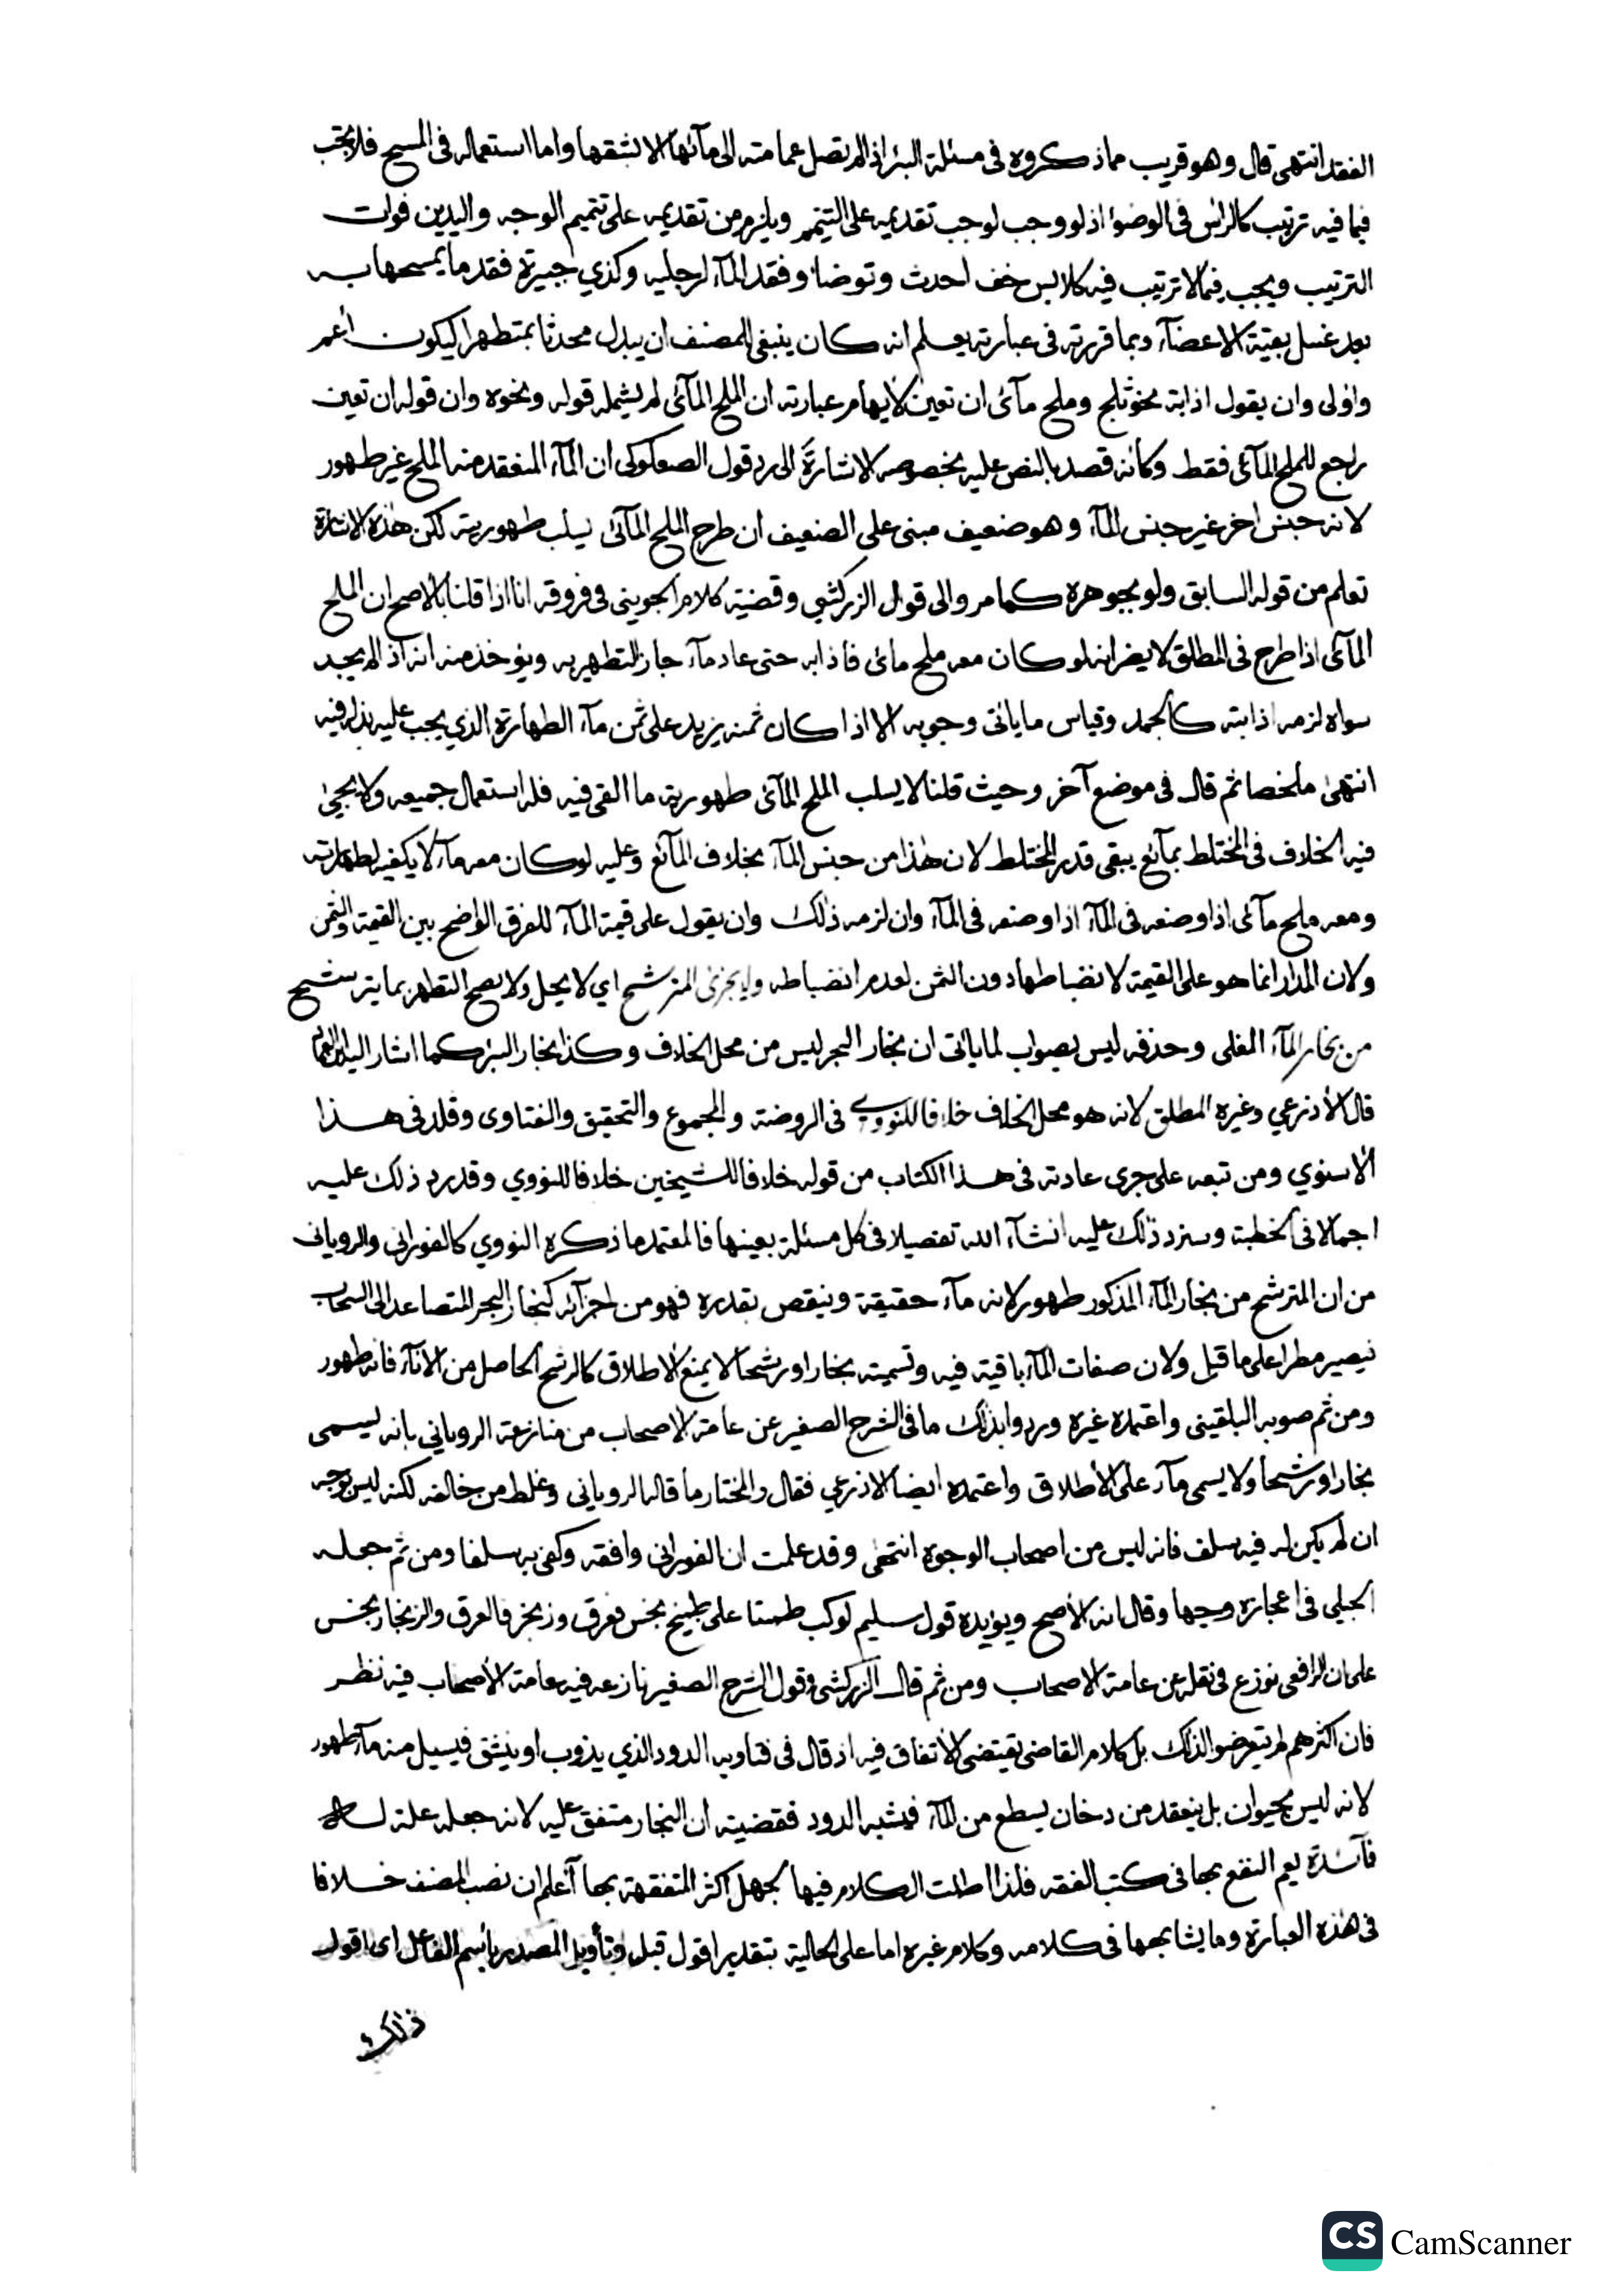 الفقد انتهى قال وهو قريب مما ذكروه فى مسئلة البئر اذا لم تصل عمامته الى مآئها الا بشقها واما استعماله فى المسح فلا يجب
فيما فيه ترتيب كالراس فى الوضوء اذ لو وجب لوجب تقديمه على التيمم ويلزم من تقديمه على تتميم الوجه واليدين فوات
الترتيب ويجب فيما لا ترتيب فيه كلابس خف احدث وتوضأ وفقد المآء لرجليه وكذي جبيرة فقد ما يمسحها به
بعد غسل بقية الاعضآء وبما قررته فى عبارته يعلم انه كان ينبغى للمصنف ان يبدل محدثا بمتطهرا ليكون أعم
واولى وان يقول اذابة نحو ثلج وملح مآئى ان تعين لأيهام عبارته ان الملح المآئى لم يشمله قوله ونحوه وان قوله ان تعين
راجع للملح المآئى فقط وكأنه قصد بالنص عليه بخصوصه الاشارة الى رد قول الصعلوكى ان المآء المنعقد منه الملح غير طهور
لانه جنس اخر غير جنس المآء وهو ضعيف مبنى على الضعيف ان طرح الملح المآئى يسلب طهوريته لكن هذه الاشارة
تعلم من قوله السابق ولو بجوهره كما مر والى قول الزركشي وقضية كلام الجوينى فى فروقه انا اذا قلنا بالأصح ان الملح
المآئى اذا طرح فى المطلق لا يضر انه لو كان معه ملح مائى فاذابه حتى عاد مآء جاز التطهير به ويؤخذ منه انه اذا لم يجد
سواه لزمه اذابته كالجمد وقياس ما ياتى وجوبه الا اذا كان ثمنه يزيد على ثمن مآء الطهارة الذي يجب عليه بذله فيه
انتهى ملخصا ثم قال فى موضع آخر وحيث قلنا لا يسلب الملح المآئى طهورية ما القى فيه فله استعمال جميعه ولا يجئ
فيه الخلاف فى المختلط بمآئع يبقى قدر المختلط لان هذا من جنس المآء بخلاف المآئع وعليه لو كان معه مآء لا يكفيه لطهارته
ومعه ملح مآئى اذا وضعه فى المآء اذا وضعه فى المآء وان لزمه ذلك وان يقول على قيمة المآء للفرق الواضح بين القيمة والثمن
ولان المدار انما هو على القيمة لانضباطها دون الثمن لعدم انضباطه ولا يجزئ المترشح اي لا يحل ولا يصح التطهر بما يترشح
من بخار المآء المغلى وحذفه ليس بصواب لما ياتى ان بخار البحر ليس من محل الخلاف وكذا بخار البئر كما اشار اليه ابن العماد
قال الأذرعي وغيره المطلق لانه هو محل الخلاف خلافا للنووي فى الروضة والمجموع والتحقيق والفتاوى وقلد فى هذا
الأسنوي ومن تبعه على جرى عادته فى هذا الكتاب من قوله خلافا للشيخين خلافا للنووي وقد رد ذلك عليه
اجمالا فى الخطبة وسنرد ذلك عليه انشآء الله تفصيلا فى كل مسئلة بعينها فالمعتمد ما ذكره النووي كالفورانى والرويانى
من ان المترشح من بخار المآء المذكور طهور لانه مآء حقيقة وينقص بقدره فهو من اجزآئه كبخار البحر المتصاعد الى السحاب
فيصير مطرا على ما قيل ولان صفات المآء باقية فيه وتسميته بخارا ورشحا لا يمنع الاطلاق كالرشح الحاصل من الانآء فانه طهور
ومن ثم صوبه البلقينى واعتمده غيره وردوا بذلك ما فى الشرح الصغير عن عامة الأصحاب من منازعة الرويانى بانه يسمى
بخارا ورشحا ولا يسمى مآء على الأطلاق واعتمده ايضا الاذرعي فقال والمختار ما قاله الرويانى وغلط من خالفه لكنه ليس بوجه
ان لم يكن له فيه سلف فانه ليس من اصحاب الوجوه انتهى وقد علمت ان الفورانى وافقه وكفى به سلفا ومن ثم جعله
الجيلى فى اعجازه وجها وقال انه الأصح ويؤيده قول سليم لو كب طستا على طبيخ نجس فعرق وزنجر فالعرق والزنجار نجس
على ان الرافعى نوزع فى نقله عن عامة الاصحاب ومن ثم قال الزركشى وقول الشرح الصغير نازعه فيه عامة الأصحاب فيه نظر
فان اكثرهم لم يتعرضوا لذلك بل كلام القاضى يقتضى الأتفاق فيه اذ قال فى فتاويه الدود الذي يذوب او ينشق فيسيل منه مآء طهور
لانه ليس بحيوان بل ينعقد من دخان يسطع من المآء فيشبه الدود فقضيته ان البخار متفق عليه لانه جعله علة له
فآئدة يعم النفع بها فى كتب الفقه فلذا اطلت الكلام فيها لجهل اكثر المتفقهة بها أعلم ان نصب المصنف خلافا
فى هذه العبارة وما يشابهها فى كلامه وكلام غيره اما على الحالية بتقدير اقول قبل وتأويل المصدر باسم الفاعل اى اقول
ذلك
CS CamScanner